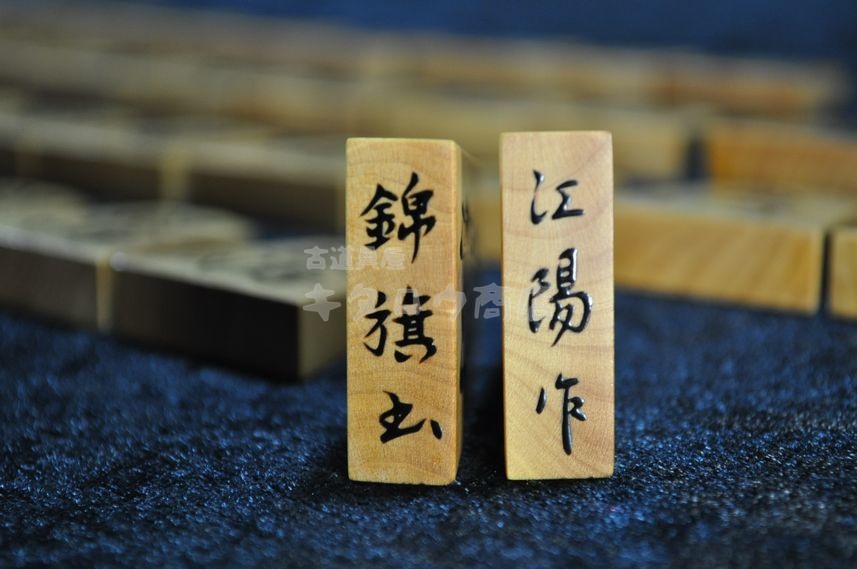 錦旗書
江陽作
古道具屋
キタロウ商店